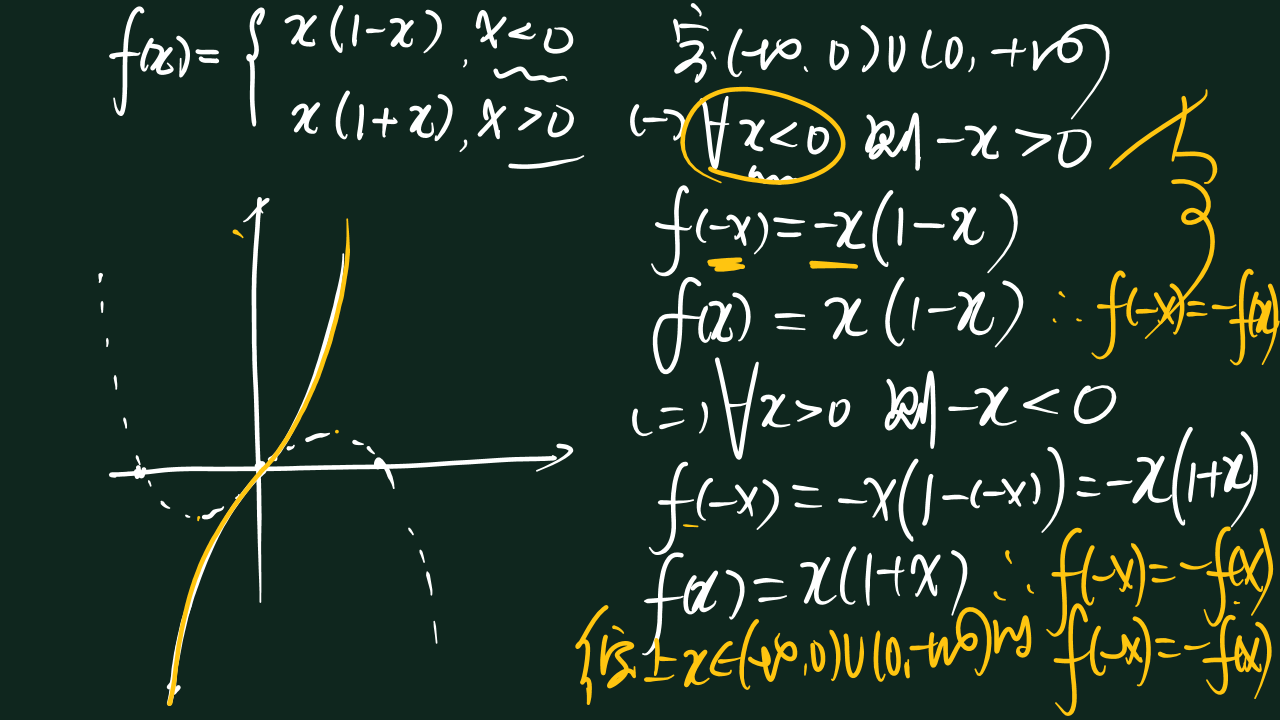 f(x) = { x(1-x), x<0
x(1+x), x>0
定(-∞,0)∪(0,+∞)
(一) ∀x<0 则 -x>0
f(-x) = -x(1-x)
f(x) = x(1-x) ∴ f(-x) = -f(x)
(二) ∀x>0 则 -x<0
f(-x) = -x(1-(-x)) = -x(1+x)
f(x) = x(1+x) ∴ f(-x) = -f(x)
x∈(-∞,0)∪(0,+∞) f(-x) = -f(x)